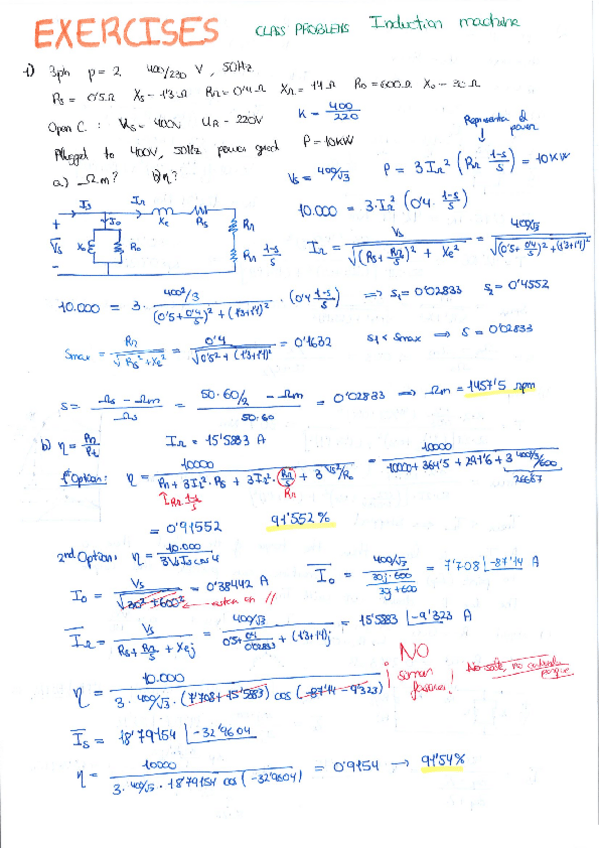 EXERCISES CLASS PROBLEMS Induction machine
1) 3ph p=2 400/220 V, 50Hz
Rs = 0'5Ω Xs = 1'3Ω Rr = 0'4Ω Xr = 1'4Ω Ro = 600Ω Xo = 30Ω
Open C.: Us = 400V UR = 220V K = 400/220
Plugged to 400V, 50Hz power grid P = 10KW
a) Ωm? b) η?
Representa el power
Vs = 400/√3 P = 3 Ir² (Rr (1-s)/s) = 10KW
10.000 = 3·Ir² (0'4 (1-s)/s)
Is Ir Xe Rs
+ Io
Vs Xo Ro Rr
Rr (1-s)/s
-
Ir = Vs/√((Rs + Rr/s)² + Xe²) = (400/√3)/√((0'5 + 0'4/s)² + (1'3+1'4)²)
10.000 = 3 · (400²/3)/((0'5 + 0'4/s)² + (1'3+1'4)²) · (0'4 (1-s)/s) => s1 = 0'02833 s2 = 0'4552
Smax = Rr/√(Rs² + Xe²) = 0'4/√(0'5² + (1'3+1'4)²) = 0'1632 s1 < smax => s = 0'02833
s = (Ωs - Ωm)/Ωs = (50·60/2 - Ωm)/(50·60) = 0'02833 => Ωm = 1457'5 rpm
b) η = Pn/Pt Ir = 15'5883 A
1st Option: η = 10000/(Pn + 3Ir²·Rs + 3Ir²·(Rr/s) + 3 Vs²/Ro) = 10000/(10000 + 364'5 + 291'6 + 3 (400/√3)/600)
Rr
266'67
= 0'91552 91'552%
2nd Option: η = 10.000/(3 Vs Is cos φ)
Io = Vs/√(30² + 600²) = 0'38442 A
están en //
Io = (400/√3)/(30j·600/(30j+600)) = 7'708 |-87'14 A
Ir = Vs/(Rs + Rr/s + Xej) = (400/√3)/(0'5 + 0'4/0'02833 + (1'3+1'4)j) = 15'5883 |-9'323 A
NO
η = 10.000/(3·400/√3·(7'708+15'5883) cos(-87'14-9'323))
¡suman fasores!
Is = 18'79154 |-32'9604
η = 10000/(3·400/√3·18'79154 cos(-32'9604)) = 0'9154 → 91'54%